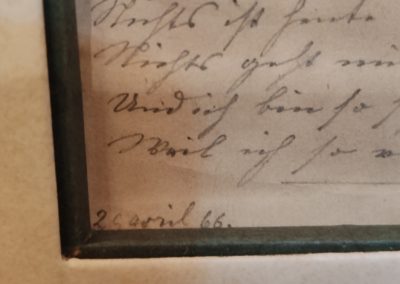 Nichts ist heute
Nichts geht
Und ich bin so
Weil ich so
april 66.